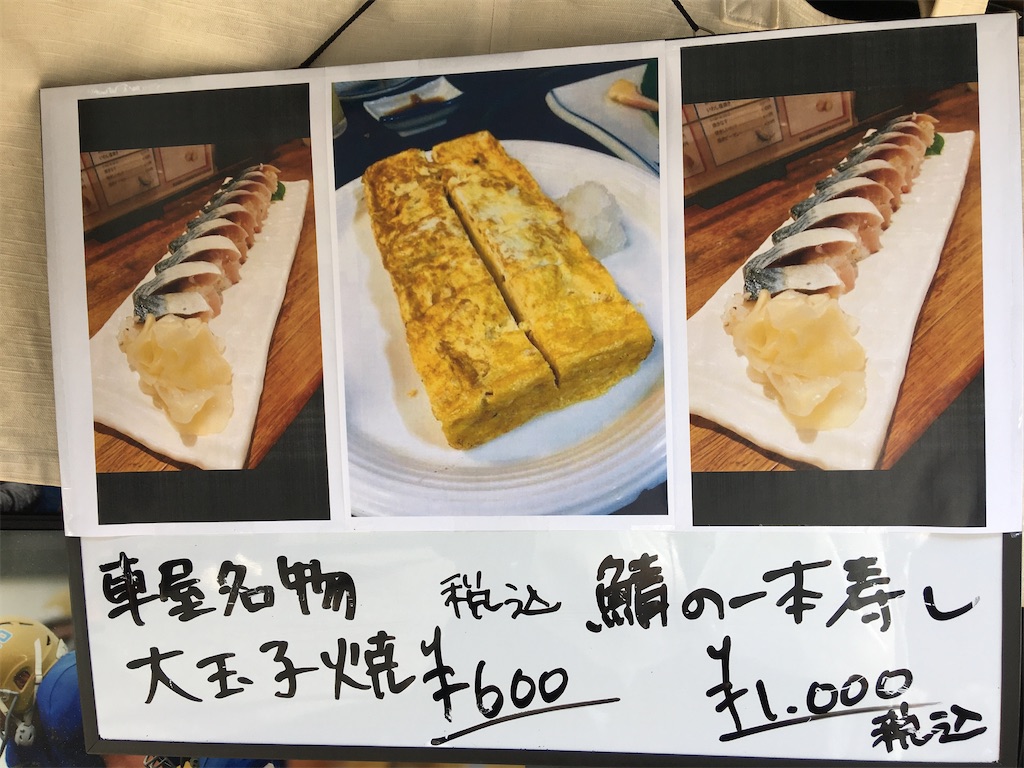 車屋名物
大玉子焼 税込 ¥600
鯖の一本寿し
¥1.000
税込